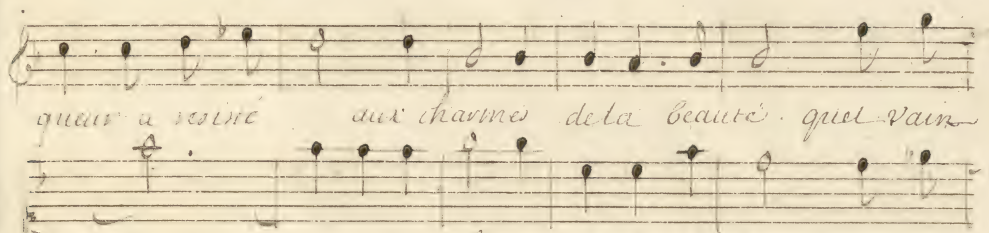 queur a resisté aux charmes de la beauté. quel vain